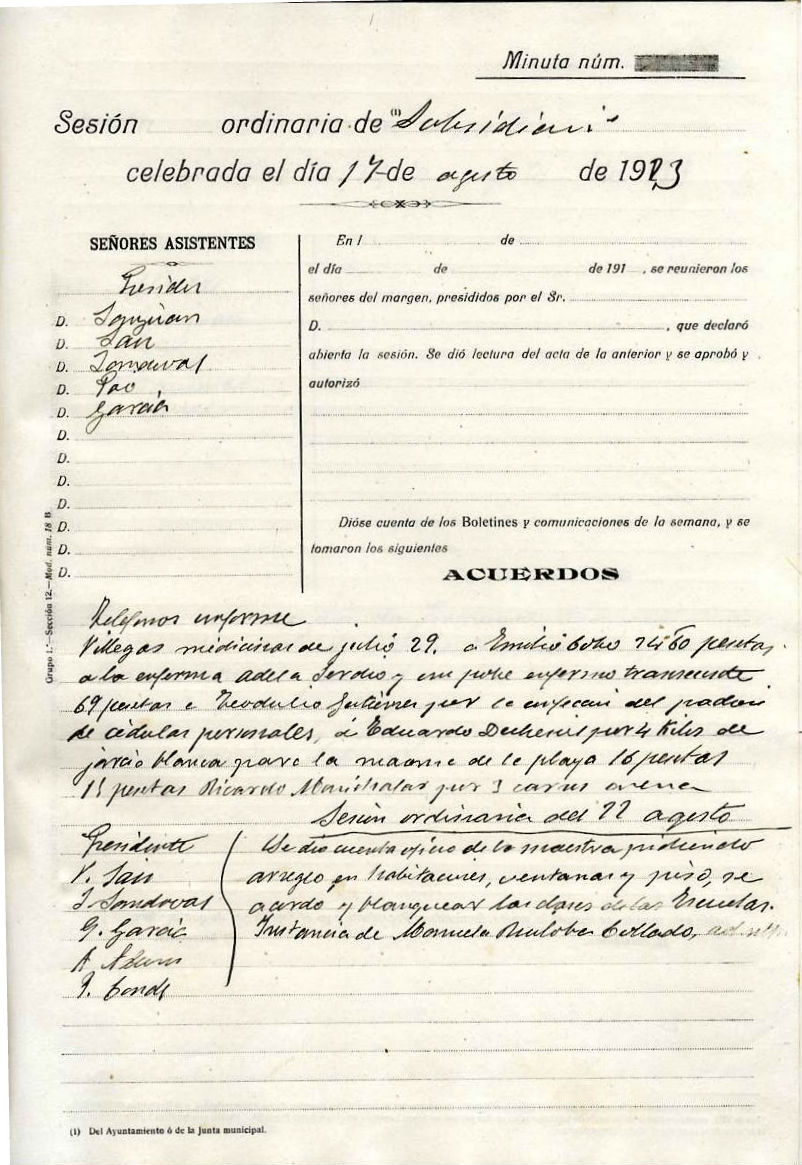 Minuta núm.
Sesión ordinaria de (1) Subsidiaria
celebrada el día 17 de agosto de 1923
SEÑORES ASISTENTES
Presidente
D.
D. San
D. Sandoval
D.
D. García
D.
D.
D.
D.
D.
D.
D.
Grupo 1.º—Sección 12.—Mod. núm. 18 B
En l de
el día de de 191 , se reunieron los
señores del margen, presididos por el Sr.
D. , que declaró
abierta la sesión. Se dió lectura del acta de la anterior y se aprobó y
autorizó
Dióse cuenta de los Boletines y comunicaciones de la semana, y se
tomaron los siguientes
ACUERDOS
informe
Villegas medicinas de julio 29. a Emilio 24'60 pesetas
a la enferma Adela y un pobre enfermo transeunte
69 pesetas a Teodulio Gutiérrez por la del padrón
de cédulas personales, á Eduardo por 4 kilos de
jarcia blanca para la maroma de la playa 16 pesetas
15 pesetas Ricardo por 3 carros arena
Sesión ordinaria del 22 agosto
Presidente
V. Sain
J. Sandoval
G. García
A.
Conde
Se dio cuenta oficio de la maestra pidiendo
arreglo en habitaciones, ventanas y piso, se
acordo y blanquear las clases de las Escuelas.
Instancia de Manuela Collado,
(1) Del Ayuntamiento ó de la Junta municipal.